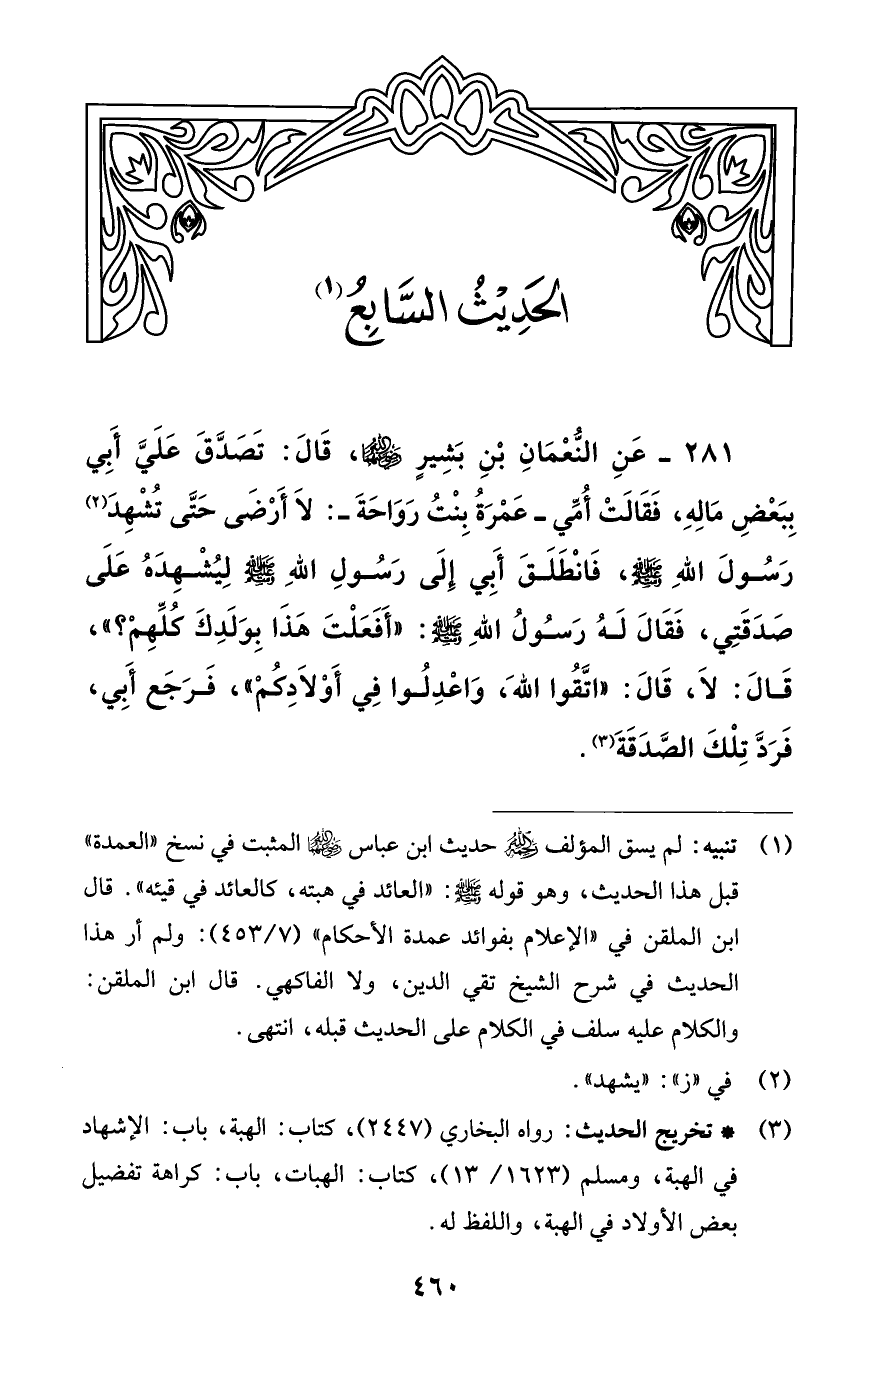 الحَدِيْثُ السَّابِعُ(١)
٢٨١ - عَنِ النُّعْمَانِ بْنِ بَشِيرٍ رضي الله عنهما، قَالَ: تَصَدَّقَ عَلَيَّ أَبِي
بِبَعْضِ مَالِهِ، فَقَالَتْ أُمِّي - عَمْرَةُ بِنْتُ رَوَاحَةَ -: لاَ أَرْضَى حَتَّى تُشْهِدَ(٢)
رَسُولَ اللهِ ﷺ، فَانْطَلَقَ أَبِي إِلَى رَسُولِ اللهِ ﷺ لِيُشْهِدَهُ عَلَى
صَدَقَتِي، فَقَالَ لَهُ رَسُولُ اللهِ ﷺ: «أَفَعَلْتَ هَذَا بِوَلَدِكَ كُلِّهِمْ؟»،
قَالَ: لاَ، قَالَ: «اتَّقُوا اللهَ، وَاعْدِلُوا فِي أَوْلاَدِكُمْ»، فَرَجَعَ أَبِي،
فَرَدَّ تِلْكَ الصَّدَقَةَ(٣).
(١) تنبيه: لم يسق المؤلف رحمه الله حديث ابن عباس رضي الله عنهما المثبت في نسخ «العمدة»
قبل هذا الحديث، وهو قوله ﷺ: «العائد في هبته، كالعائد في قيئه». قال
ابن الملقن في «الإعلام بفوائد عمدة الأحكام» (٤٥٣/٧): ولم أر هذا
الحديث في شرح الشيخ تقي الدين، ولا الفاكهي. قال ابن الملقن:
والكلام عليه سلف في الكلام على الحديث قبله، انتهى.
(٢) في «ز»: «يشهد».
(٣) * تخريج الحديث: رواه البخاري (٢٤٤٧)، كتاب: الهبة، باب: الإشهاد
في الهبة، ومسلم (١٦٢٣/ ١٣)، كتاب: الهبات، باب: كراهة تفضيل
بعض الأولاد في الهبة، واللفظ له.
٤٦٠